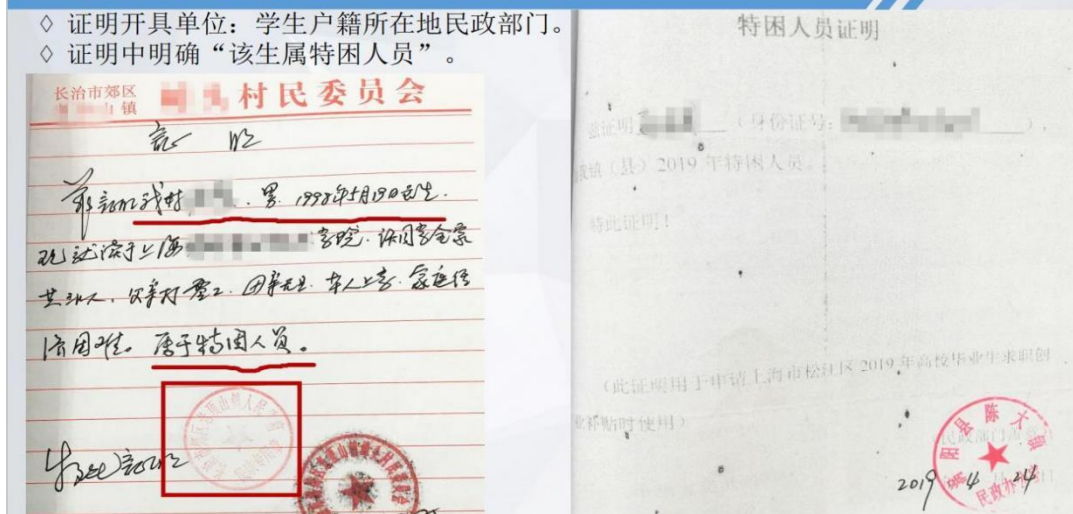 ◇ 证明开具单位：学生户籍所在地民政部门。
◇ 证明中明确“该生属特困人员”。
长治市郊区
镇
村民委员会
证明
兹证明我村 ，男，1995年5月19日出生。
现就读于上海 学院，该同学全家
共 人，父亲打零工， 本人上学，家庭经
济困难。属于特困人员。
特此证明
特困人员证明
兹证明 （身份证号： ），
镇（县）2019 年特困人员。
特此证明！
（此证明用于申请上海市松江区 2019 年高校毕业生求职创
业补贴时使用）
（民政部门盖章）
2019 4 24日
阳县陈大镇
民政办